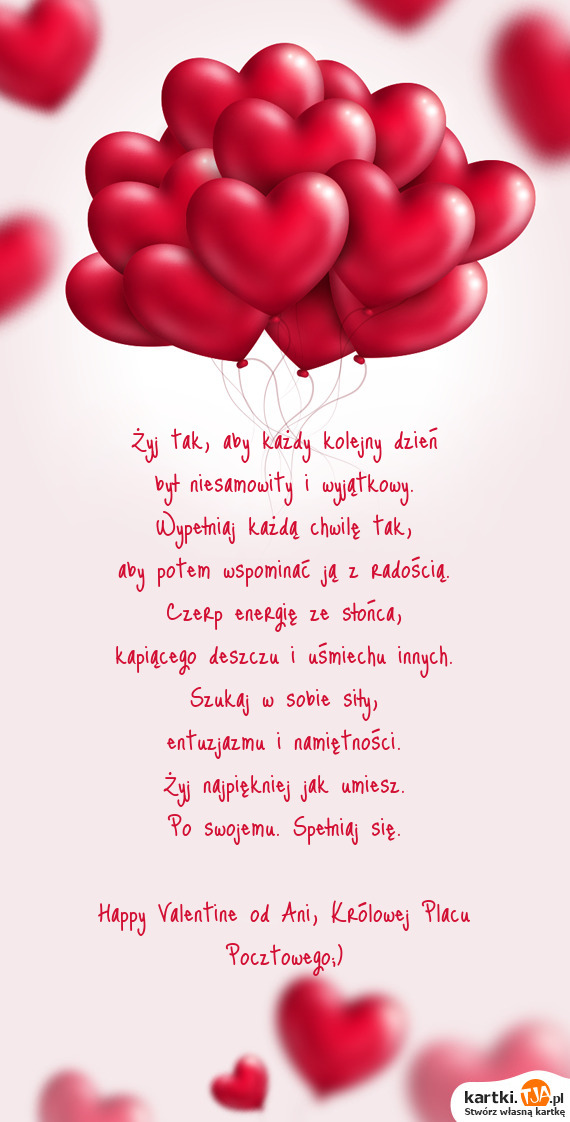 Żyj tak, aby każdy kolejny dzień
był niesamowity i wyjątkowy.
Wypełniaj każdą chwilę tak,
aby potem wspominać ją z radością.
Czerp energię ze słońca,
kapiącego deszczu i uśmiechu innych.
Szukaj w sobie siły,
entuzjazmu i namiętności.
Żyj najpiękniej jak umiesz.
Po swojemu. Spełniaj się.
Happy Valentine od Ani, Królowej Placu
Pocztowego;)
kartki.TJA.pl
Stwórz własną kartkę